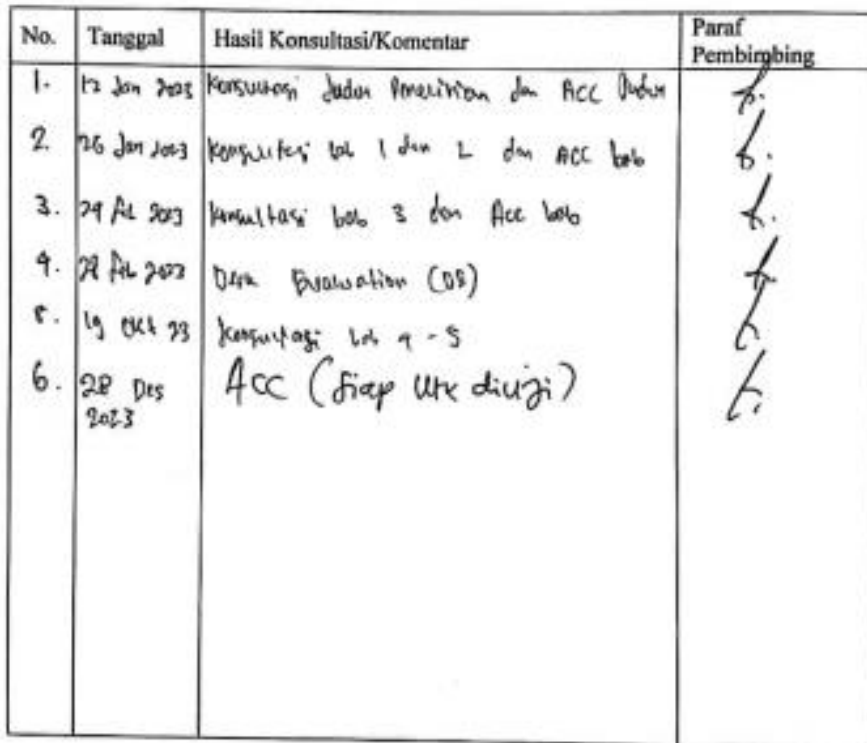 No. Tanggal Hasil Konsultasi/Komentar Paraf Pembimbing
1. 12 Jan 2023 Konsultasi Judul Penelitian dan ACC Judul
2. 26 Jan 2023 Konsultasi bab 1 dan 2 dan ACC bab
3. Feb 2023 Konsultasi bab 3 dan Acc bab
4. 28 Feb 2023 Desk Evaluation (DE)
5. 19 Okt 23 Konsultasi bab 4 - 5
6. 28 Des 2023 ACC (Siap utk diuji)